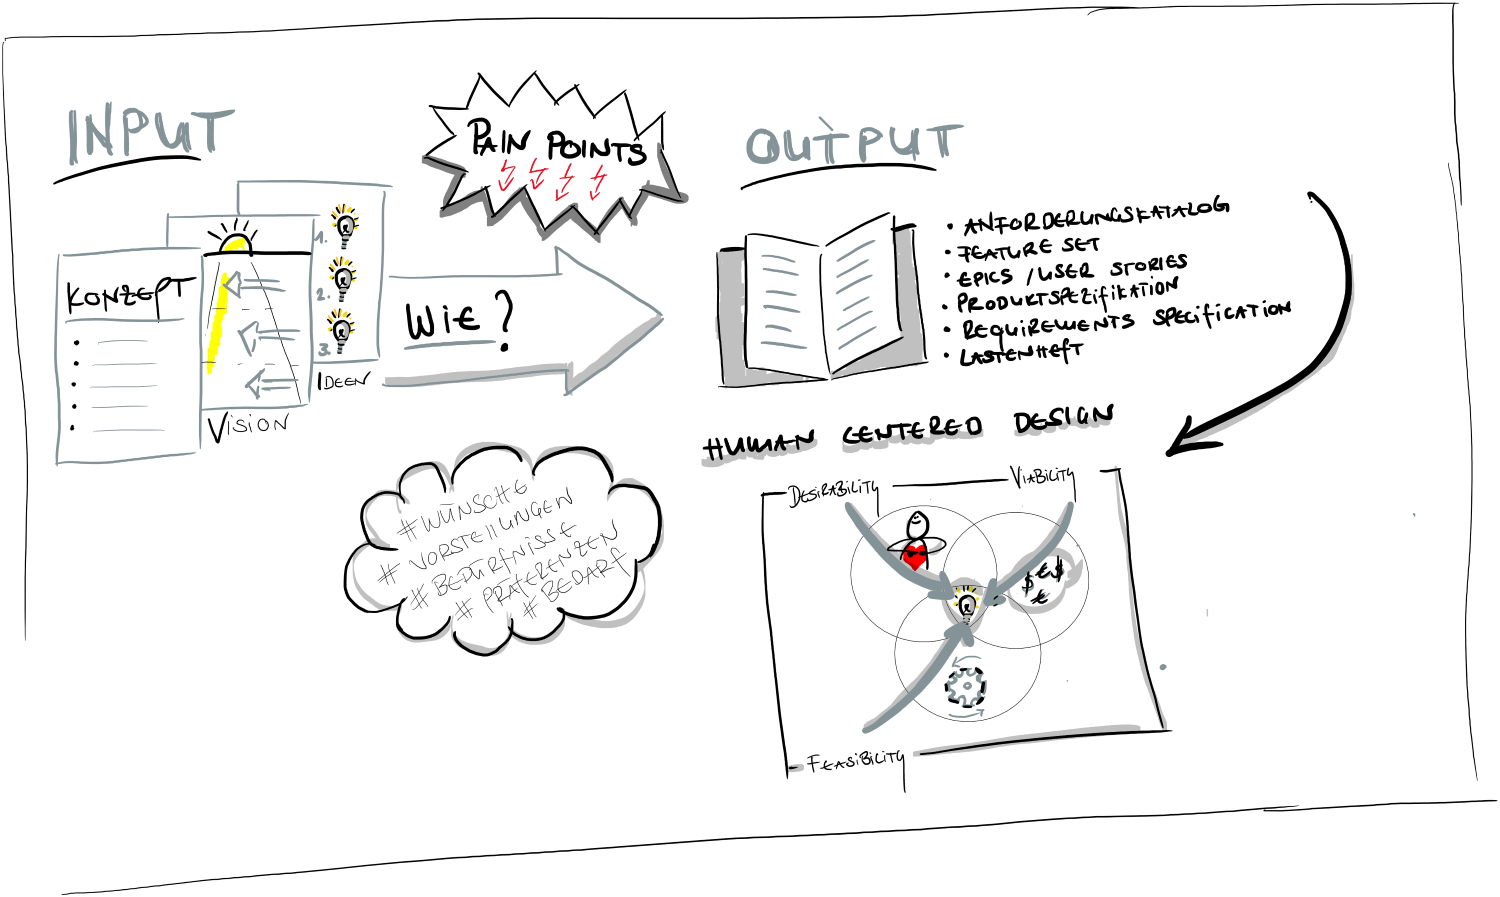 INPUT
PAIN POINTS
OUTPUT
KONZEPT
1.
2.
3.
IDEEN
VISION
WIE?
• ANFORDERUNGSKATALOG
• FEATURE SET
• EPICS / USER STORIES
• PRODUKTSPEZIFIKATION
• REQUIREMENTS SPECIFICATION
• LASTENHEFT
#WÜNSCHE
#VORSTELLUNGEN
#BEDÜRFNISSE
#PRÄFERENZEN
#BEDARF
HUMAN CENTERED DESIGN
DESIRABILITY
VIABILITY
$ € $
€
FEASIBILITY